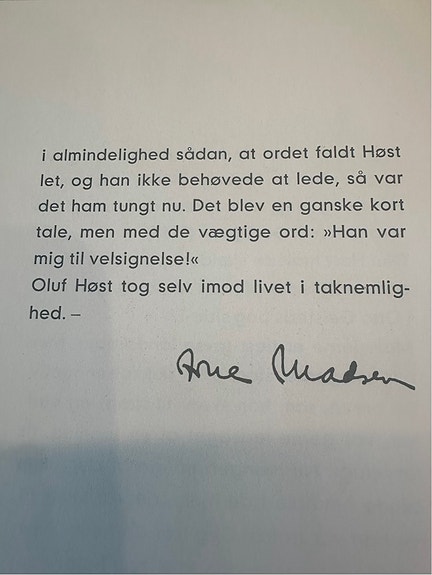 i almindelighed sådan, at ordet faldt Høst
let, og han ikke behøvede at lede, så var
det ham tungt nu. Det blev en ganske kort
tale, men med de vægtige ord: »Han var
mig til velsignelse!«
Oluf Høst tog selv imod livet i taknemlig-
hed. –
Arne Madsen